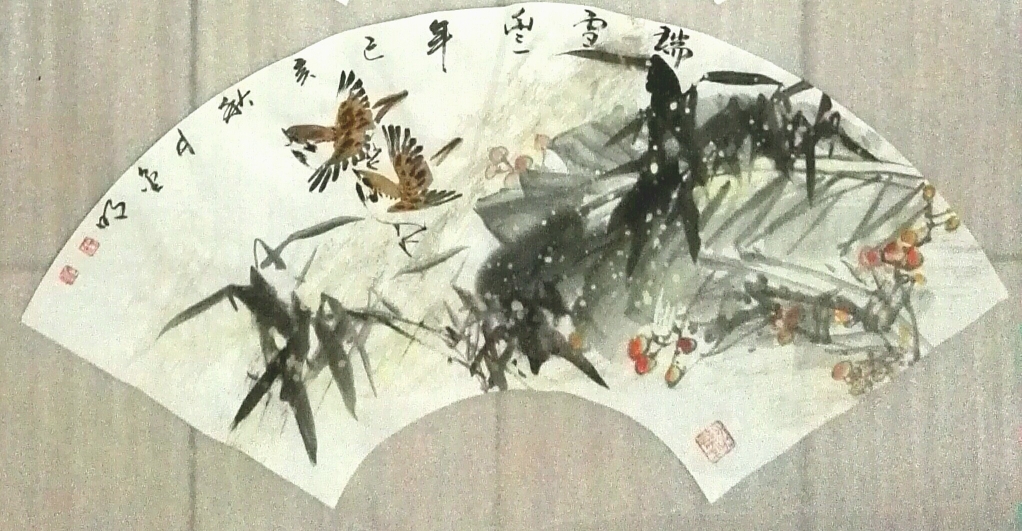 瑞雪豐年己亥秋月